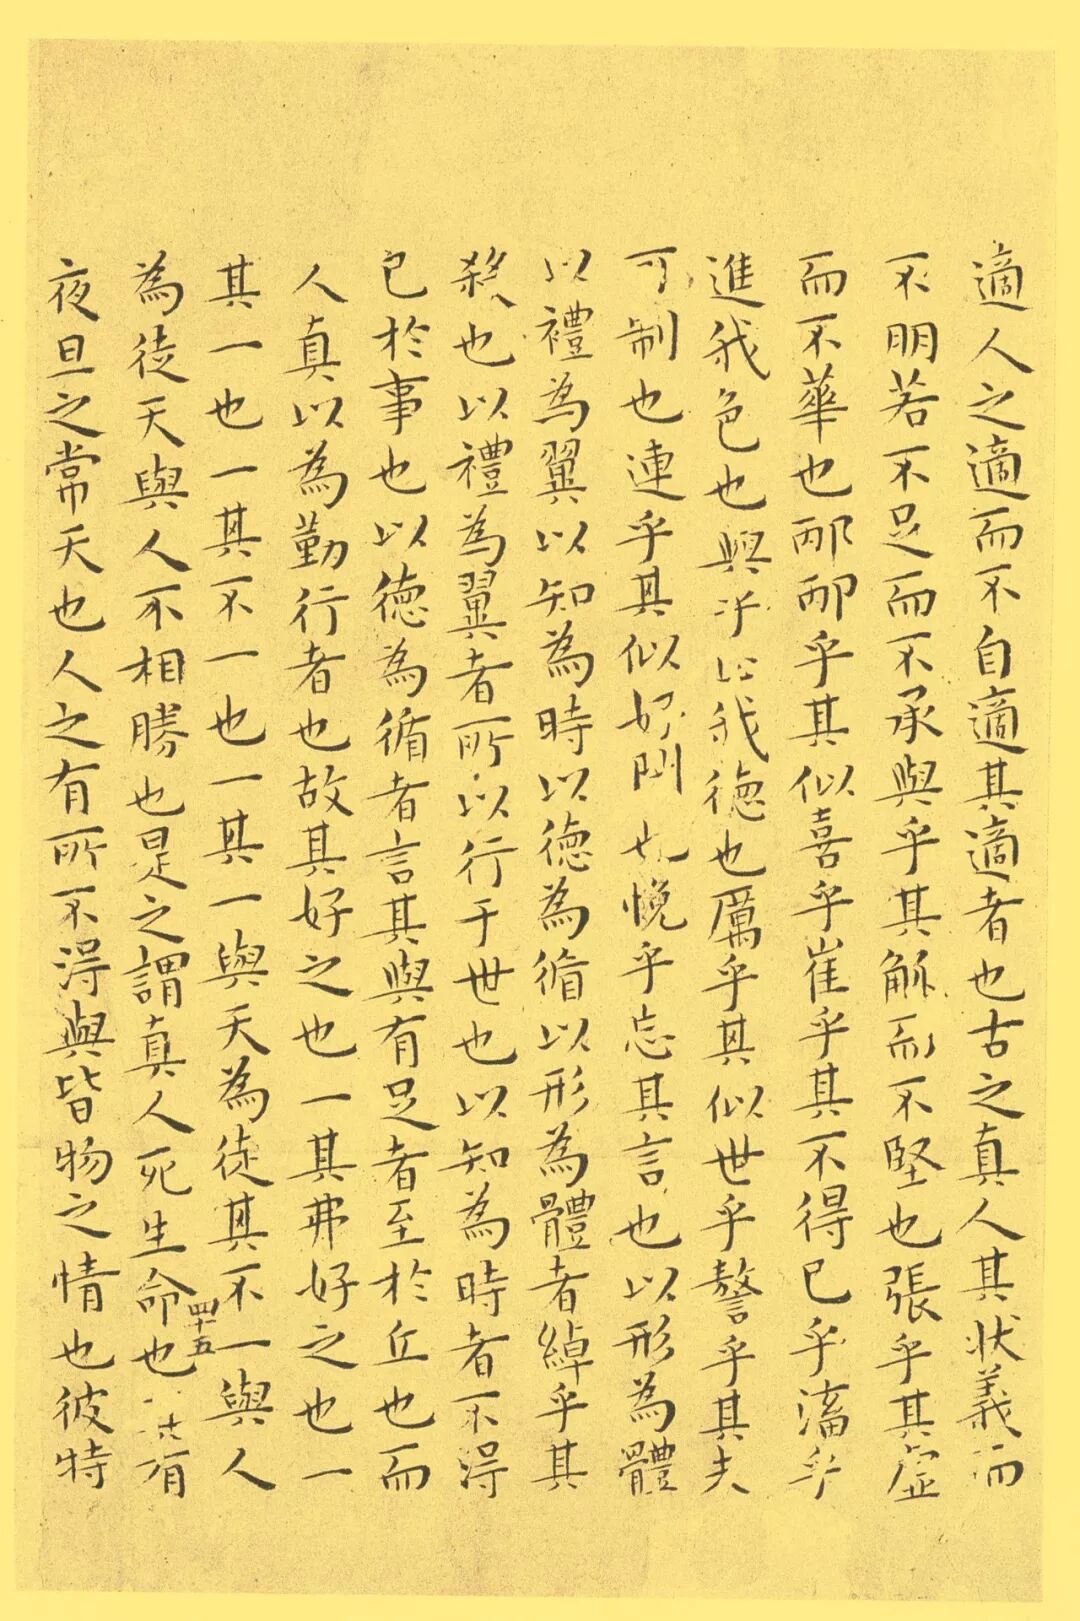 適人之適而不自適其適者也古之真人其状義而
不明若不足而不承與乎其觚而不堅也張乎其虛
而不華也邴邴乎其似喜乎崔乎其不得已乎滀乎
進我色也與乎止我德也厲乎其似世乎謷乎其未
可制也連乎其似好閇也悗乎忘其言也以形為體
以禮為翼以知為時以德為循以形為體者綽乎其
殺也以禮為翼者所以行于世也以知為時者不得
已於事也以德為循者言其與有足者至於丘也而
人真以為勤行者也故其好之也一其弗好之也一
其一也一其不一也一其一與天為徒其不一與人
為徒天與人不相勝也是之謂真人死生命也其有
夜旦之常天也人之有所不得與皆物之情也彼特
四十五